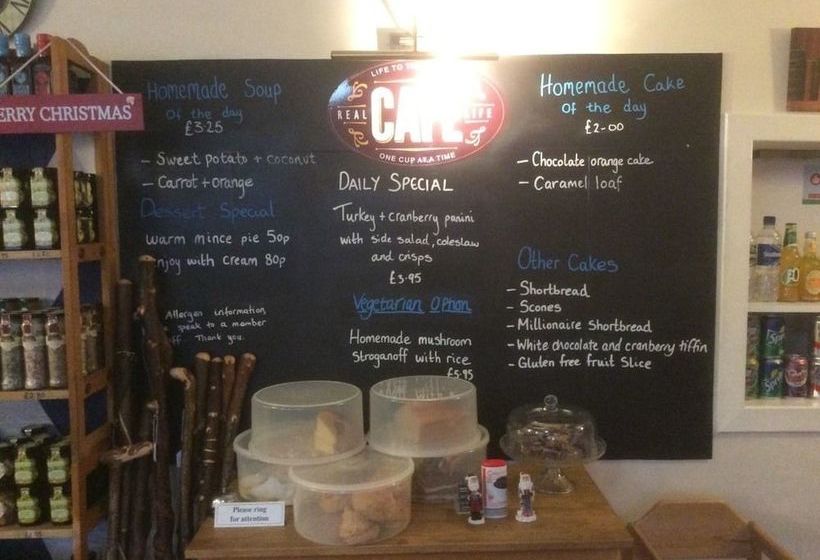 ERRY CHRISTMAS
Homemade Soup
of the day
£3.25
- Sweet potato + coconut
- Carrot + orange
Dessert Special
warm mince pie 50p
njoy with cream 80p
Allergen information,
speak to a member
ff Thank you.
LIFE TO
REAL CAFE LIFE
ONE CUP AT A TIME
DAILY SPECIAL
Turkey + cranberry panini
with side salad, coleslaw
and crisps
£3.95
Vegetarian Option
Homemade mushroom
Stroganoff with rice
£5.95
Homemade Cake
of the day
£2-00
- Chocolate orange cake
- Caramel loaf
Other Cakes
- Shortbread
- Scones
- Millionaire Shortbread
- White chocolate and cranberry tiffin
- Gluten free fruit slice
Please ring
for attention